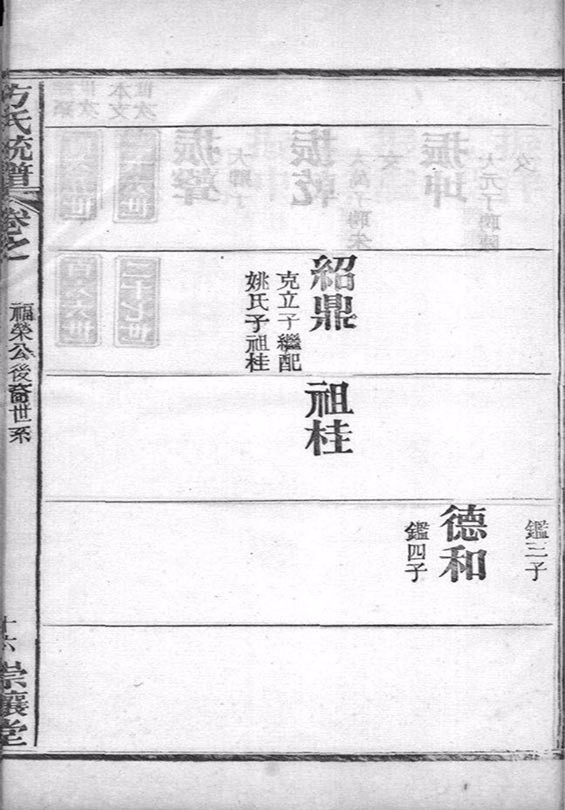 紹鼎
克立子繼配
姚氏子祖桂
祖桂
鑑三子
德和
鑑四子
方氏統譜
卷之
福榮公後裔世系
十六
崇讓堂